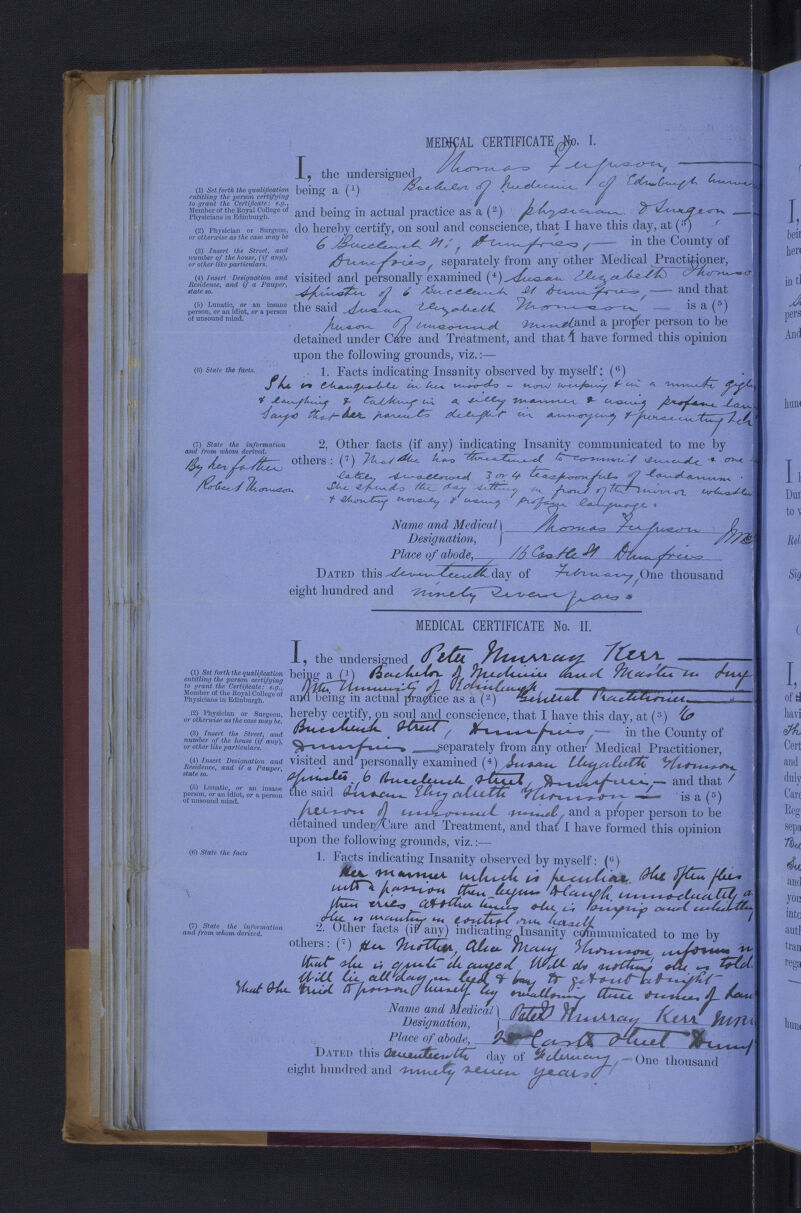 MEDICAL CERTIFICATE No. I.
I, the undersigned Thomas Ferguson,
being a (1) Bachelor of Medicine of Edinburgh
and being in actual practice as a (2) physician & Surgeon
do hereby certify, on soul and conscience, that I have this day, at (3)
6 Buccleuch St, Dumfries, in the County of
Dumfries, separately from any other Medical Practitioner,
visited and personally examined (4) Susan Elizabeth Thomson
Spinster of 6 Buccleuch St Dumfries, and that
the said Susan Elizabeth Thomson is a (5)
person of unsound mind and a proper person to be
detained under Care and Treatment, and that I have formed this opinion
upon the following grounds, viz.:—
1. Facts indicating Insanity observed by myself: (6)
She is changeable in her moods - now weeping & in a minute
& laughing & talking in a silly manner & using profane
Says that her parents delight in annoying & persecuting her
2. Other facts (if any) indicating Insanity communicated to me by
others: (7) That she has threatened to commit suicide & one
lately swallowed 3 or 4 teaspoonfuls of laudanum.
She spends the day sitting in front of the mirror
& shouting noisely & using profane language.
Name and Medical Designation, Thomas Ferguson
Place of abode, 16 Castle St Dumfries
DATED this seventeenth day of February, One thousand
eight hundred and ninety seven years.
(1) Set forth the qualification
entitling the person certifying
to grant the Certificate: e.g.,
Member of the Royal College of
Physicians in Edinburgh.
(2) Physician or Surgeon,
or otherwise as the case may be
(3) Insert the Street, and
number of the house, (if any),
or other like particulars.
(4) Insert Designation and
Residence, and if a Pauper,
state so.
(5) Lunatic, or an insane
person, or an idiot, or a person
of unsound mind.
(6) State the facts.
(7) State the information
and from whom derived.
By her father
Robert Thomson
MEDICAL CERTIFICATE No. II.
I, the undersigned Peter Murray Kerr
being a (1) Bachelor of Medicine and Master in
University of Edinburgh
and being in actual practice as a (2) General Practitioner
hereby certify, on soul and conscience, that I have this day, at (3) 6
Buccleuch Street, Dumfries, in the County of
Dumfries separately from any other Medical Practitioner,
visited and personally examined (4) Susan Elizabeth Thomson
spinster, 6 Buccleuch Street, Dumfries, and that
the said Susan Elizabeth Thomson is a (5)
person of unsound mind, and a proper person to be
detained under Care and Treatment, and that I have formed this opinion
upon the following grounds, viz.:—
1. Facts indicating Insanity observed by myself: (6)
Her manner which is peculiar. She often flies
into a passion then begins to laugh immoderately
then cries at other times she is
She is wanting in control over herself
2. Other facts (if any) indicating Insanity communicated to me by
others: (7) Her Mother, Alice Mary Thomson, informs
that she is quite changed. Will do nothing she is told.
Will lie all day in bed & to get out at night -
that she tried to poison herself by swallowing three
Name and Medical Designation, Peter Murray Kerr
Place of abode, Castle Street
DATED this seventeenth day of February, One thousand
eight hundred and ninety seven years
(1) Set forth the qualification
entitling the person certifying
to grant the Certificate: e.g.,
Member of the Royal College of
Physicians in Edinburgh.
(2) Physician or Surgeon,
or otherwise as the case may be.
(3) Insert the Street, and
number of the house (if any),
or other like particulars.
(4) Insert Designation and
Residence, and if a Pauper,
state so.
(5) Lunatic, or an insane
person, or an idiot, or a person
of unsound mind.
(6) State the facts
(7) State the information
and from whom derived.